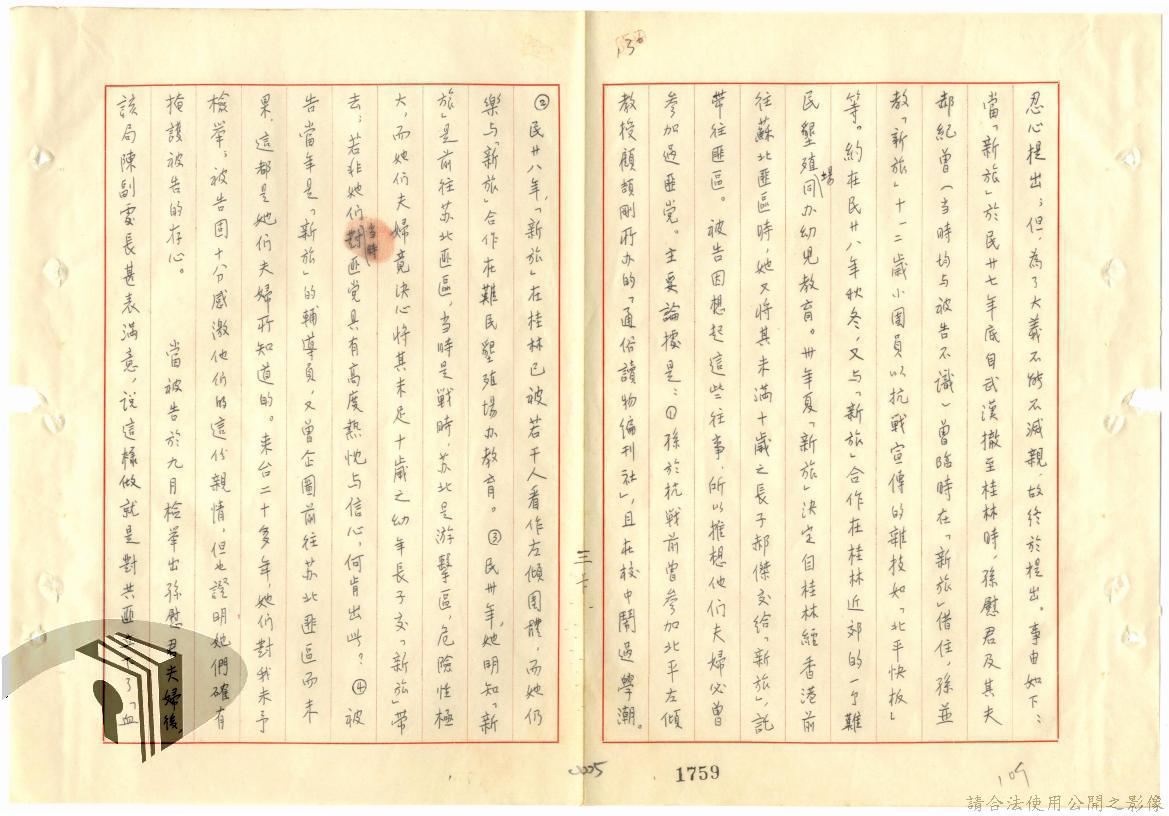 忍心提出；但，為了大義不能不滅親，故終於提出。事由如下：
當「新旅」於民廿七年底自武漢撤至桂林時，孫慰君及其夫
郝紀曾（当時均与被告不識）曾臨時在「新旅」借住，孫並
教「新旅」十一二歲小團員以抗戰宣傳的雜技如「北平快板」
等。約在民廿八年秋冬，又与「新旅」合作在桂林近郊的一个難
民墾殖場同办幼児教育。卅年夏「新旅」決定自桂林經香港前
往蘇北匪區時，她又將其未滿十歲之長子郝傑交給「新旅」，託
帶往匪區。被告因想起這些往事，所以推想他们夫婦必曾
参加過匪党。主要論據是：①孫於抗戰前曾参加北平左傾
教授顧頡剛所办的「通俗讀物编刊社」，且在校中鬧過學潮。
②民廿八年，「新旅」在桂林已被若干人看作左傾團體，而她仍
樂与「新旅」合作在難民墾殖場办教育。③民卅年，她明知「新
旅」是前往苏北匪區，当時是戰時，苏北是游擊區，危險性極
大，而她们夫婦竟決心將其未足十歲之幼年長子交「新旅」帶
去；若非她们当時對匪党具有高度熱忱与信心，何肯出此？④被
告當年是「新旅」的輔導員，又曾企圖前往苏北匪區而未
果，這都是她们夫婦所知道的。来台二十多年，她们對我未予
檢举；被告固十分感激他们的這份親情，但也證明她們確有
掩護被告的存心。　當被告於九月檢举出孫慰君夫婦後，
該局陳副處長甚表滿意，说這樣做就是對共匪立下了「血
130
三十
1759
109
請合法使用公開之影像